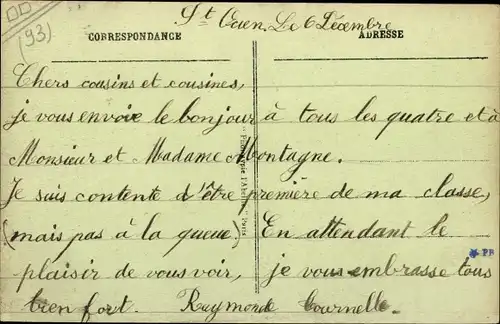 (93)
St Ouen, Le 6 Décembre
CORRESPONDANCE
ADRESSE
Chers cousins et cousines,
je vous envoie le bonjour à tous les quatre et à
Monsieur et Madame Montagne.
Je suis contente d'être première de ma classe,
(mais pas à la queue) En attendant le
plaisir de vous voir, je vous embrasse tous
bien fort. Raymonde Tournelle.
Paris